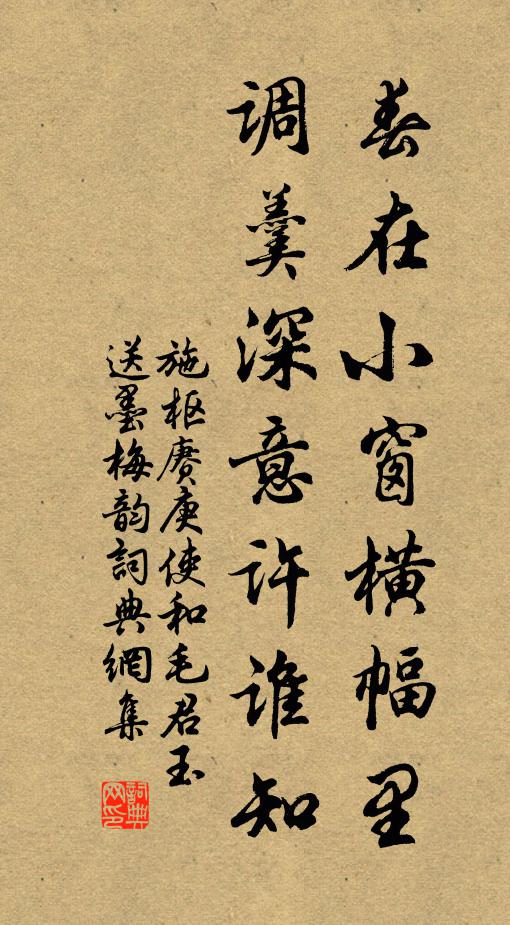 春在小窗横幅里
调羹深意许谁知
施枢赓庚使和毛君玉
送墨梅韵词典網集
詞典网印